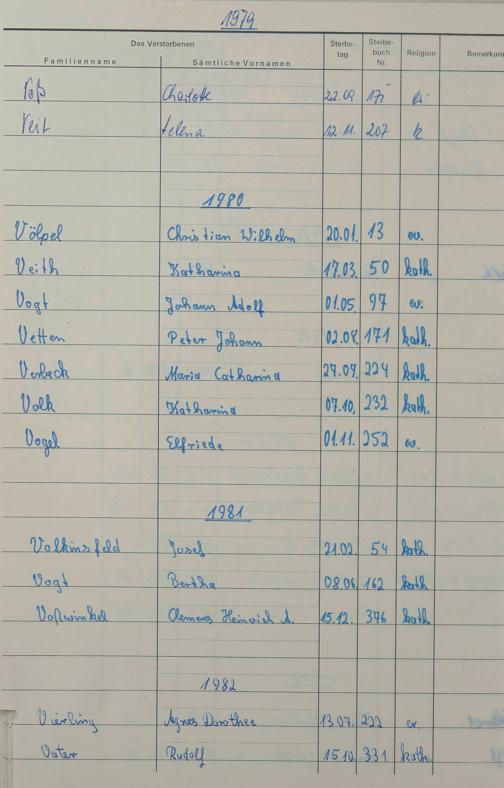 1979
Des Verstorbenen
Familienname Sämtliche Vornamen Sterbe-tag Sterbe-buch Nr. Religion Bemerkung
Voß Charlotte 22.09. 175
Veit Helena 12.11. 207 k
1980
Völpel Christian Wilhelm 20.01. 13 ev.
Veith Katharina 17.03. 50 kath.
Vogt Johann Adolf 01.05. 97 ev.
Vetten Peter Johann 02.08. 171 kath.
Verbeck Maria Catharina 27.09. 224 kath.
Volk Katharina 07.10. 232 kath.
Vogel Elfriede 01.11. 252 ev.
1981
Volkinsfeld Josef 21.02. 54 kath.
Vogt Bertha 08.06. 162 kath.
Voßwinkel Clemens Heinrich A. 15.12. 376 kath.
1982
Vierling Agnes Dorothee 13.07. 222 ev.
Vater Rudolf 15.10. 331 kath.